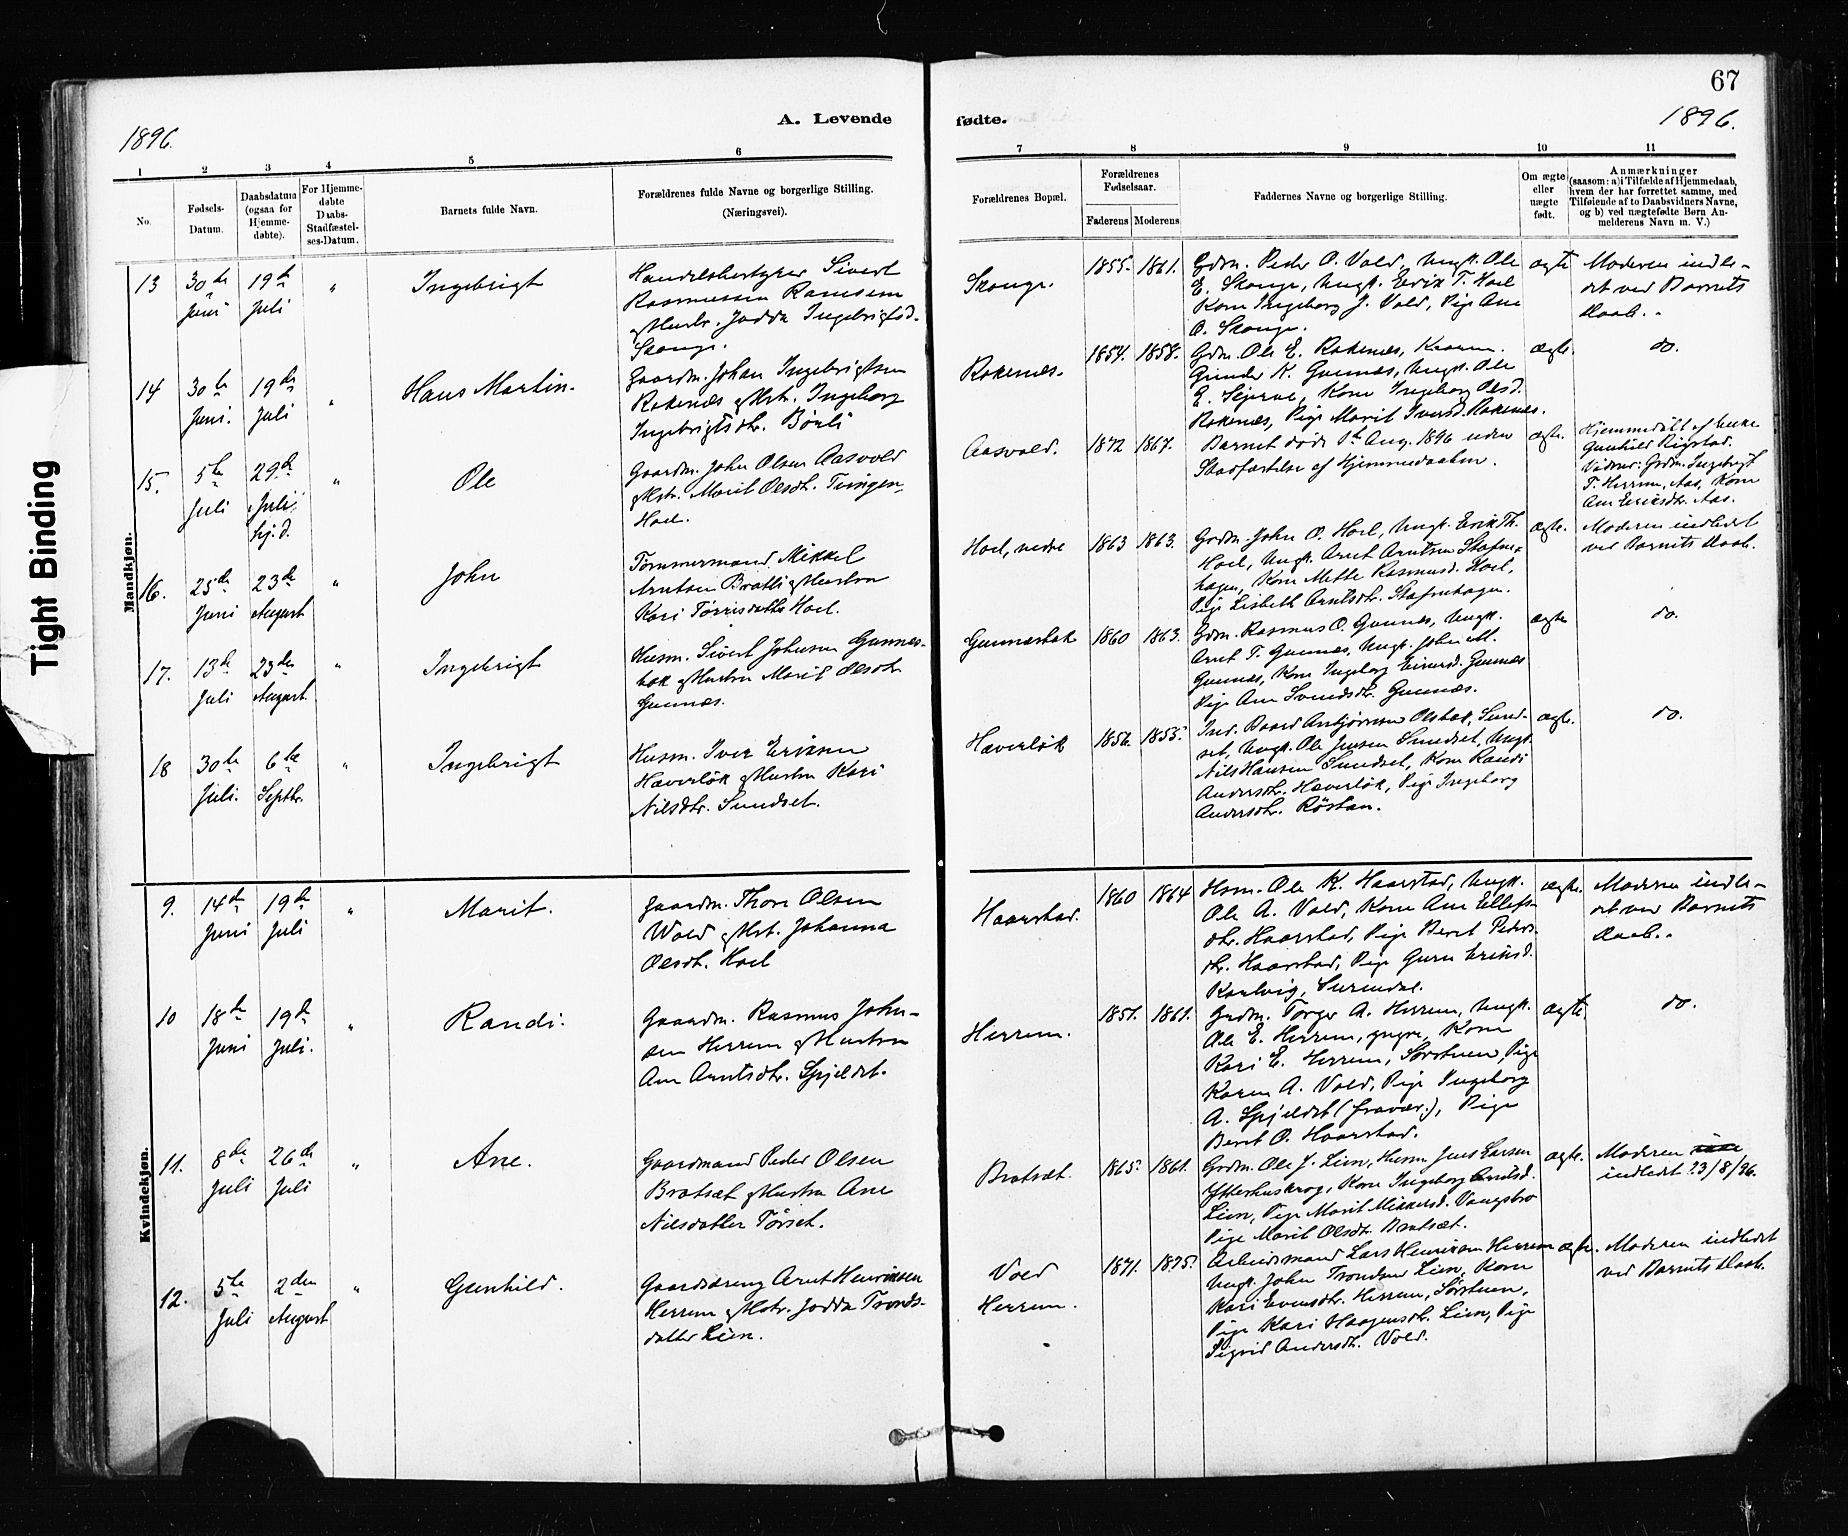 67
1896.
A. Levende
fødte.
1896.
1
2
3
4
5
6
7
8
9
10
11
No.
Fødsels-
Datum.
Daabsdatum
(ogsaa for
Hjemme-
døbte).
For Hjemme-
døbte
Daabs-
Stadfæstel-
ses-Datum.
Barnets fulde Navn.
Forældrenes fulde Navne og borgerlige Stilling.
(Næringsvei).
Forældrenes Bopæl.
Forældrenes
Fødselsaar.
Faderens
Moderens
Faddernes Navne og borgerlige Stilling.
Om ægte
eller
uægte
født.
Anmærkninger
(saasom: a) i Tilfælde af Hjemmedaab,
hvem der har forrettet samme, med
Tilføiende af to Daabsvidners Navne,
og b) ved uægtefødte Børn An-
melderens Navn m. V.)
Tight Binding
Mandkjøn.
13
30te
Juni
19de
Juli
"
Ingebrigt
Handelsbestyrer Sivert
Rasmussen Ramsem
og Hustr. Jodda Ingebrigtsd.
Skonge.
Skonge.
1855.
1861.
Gdm. Peder O. Vold, Ungk. Ole
E. Skonge, Ungk. Erik T. Hoel
Kone Ingeborg J. Vold, Pige Ane
O. Skonge.
ægte
Moderen indle-
det ved Barnets
Daab.
14
30te
Juni.
19de
Juli
"
Hans Martin.
Gaardm. Johan Ingebrigtsen
Rokenæs og Hstr. Ingeborg
Ingebrigtsdtr. Börli
Rokenæs.
1854.
1858.
Gdm. Ole E. Rokenæs, Kaarm.
Gunder K. Gunnæs, Ungk. Ole
E. Kone Ingeborg Olsd.
Rokenæs, Pige Marit Iversd. Rokenæs.
ægte.
do.
15.
5te
Juli
29de
Juli.
hj. d.
"
Ole
Gaardm. John Olsen Aasvold
og Hstr. Marit Olsdtr.
Hoel.
Aasvold.
1872
1867.
Barnet døde Aug. 1896 uden
Stadfæstelse af Hjemmedaaben.
ægte.
Hjemmedøbt af
Gunhild Rigstad.
Vidner: Grdm. Ingebrigt
T. Herrem, Aas, Kone
Ane Eriksdtr. Aas.
16.
25de
Juni
23de
August
"
John
Tømmermand Mikkel
Arntsen Bratli og Hustru
Kari Tørrisdatter Hoel.
Hoel, nedre
1863
1863.
Grdm. John O. Hoel, Ungk. Erik Th.
Hoel, Ungk. Arnt Arntsen Stafne-
hagen, Kone Mette Rasmusd. Hoel,
Pige Lisbeth Arntsdtr. Stafnehagen.
ægte.
Moderen indledet
ved Barnets Daab.
17.
13de
Juli
23de
August
"
Ingebrigt
Husm. Sivert Johnsen Gunnes-
bak og Hustru Marit Olsdtr
Gunnæs.
Gunnæsbak
1860
1863.
Gdm. Rasmus O. Gunnæs, Ungk.
Arnt T. Gunnæs, Ungk. John M.
Gunnæs, Kone Ingeborg Gunnæs
Pige Ane Svendsdtr. Gunnæs.
ægte
do.
18
30te
Juli.
6te
Septbr.
"
Ingebrigt
Husm. Iver Eriksen
Hæverløk og Hustru Kari
Nilsdtr. Sundset.
Hæverløk
1856.
1855.
Ind. Baard Olsbak, Sund-
set, Ungk. Ole Jensen Sundset, Ungk.
Nils Hansen Sundset, Kone Randi
Andersdtr. Hæverløk, Pige Ingeborg
Andersdtr. Röstan.
ægte.
do.
Kvindekjøn.
9.
14de
Juni
19de
Juli
"
Marit.
Gaardm. Thore Olsen
Wold og Hst. Johanna
Olsdtr. Hoel
Haarstad.
1860
1864
Husm. Ole K. Haarstad, Ungk.
Ole A. Vold, Kone Ane Ellefs-
dtr. Haarstad, Pige Beret Peders-
dtr. Haarstad, Pige Guru Eriksd.
Surendal.
ægte.
Moderen indle-
det ved Barnets
Daab.
10
18de
Juni
19de
Juli.
"
Randi.
Gaardm. Rasmus John-
sen Herrem og Hustru
Ane Arntsdtr. Spjeldet.
Herrem.
1857.
1861.
Grdm. Torger A. Herrem, Ungk.
Ole E. Herrem, yngre, Kone
Kari E. Herrem, Sørstuen, Pige
Karen A. Vold, Pige Ingeborg
A. Spjeldet (fravær.), Pige
Beret O. Haarstad.
ægte.
do.
11.
8de
Juli
26de
Juli
"
Ane.
Gaardmand Peder Olsen
Bratsæt og Hustru Ane
Nilsdatter Tørset.
Bratsæt.
1865.
1861.
Grdm. Ole J. Lien, Husm. Jens Larsen
Ytterhuskrog, Kone Ingeborg Arntsd.
Lien, Pige Marit Mikkelsd. Vangsbro
Pige Marit Olsdtr. Bratsæt.
ægte.
Moderen
indledt 23/8/96.
12.
5te
Juli
2den
August
"
Gunhild.
Gaarddreng Arnt Henriksen
Herrem og Hstr. Jodda Tronds-
datter Lien.
Vold
Herrem.
1871.
1875.
Arbeidsmand Lars Henriksen Herrem
Ungk. John Trondsen Lien, Kone
Kari Evensdtr. Herrem, Sørstuen,
Pige Kari Haagensdtr. Lien, Pige
Sigrid Andersdtr. Vold.
ægte.
Moderen indledet
ved Barnets Daab.